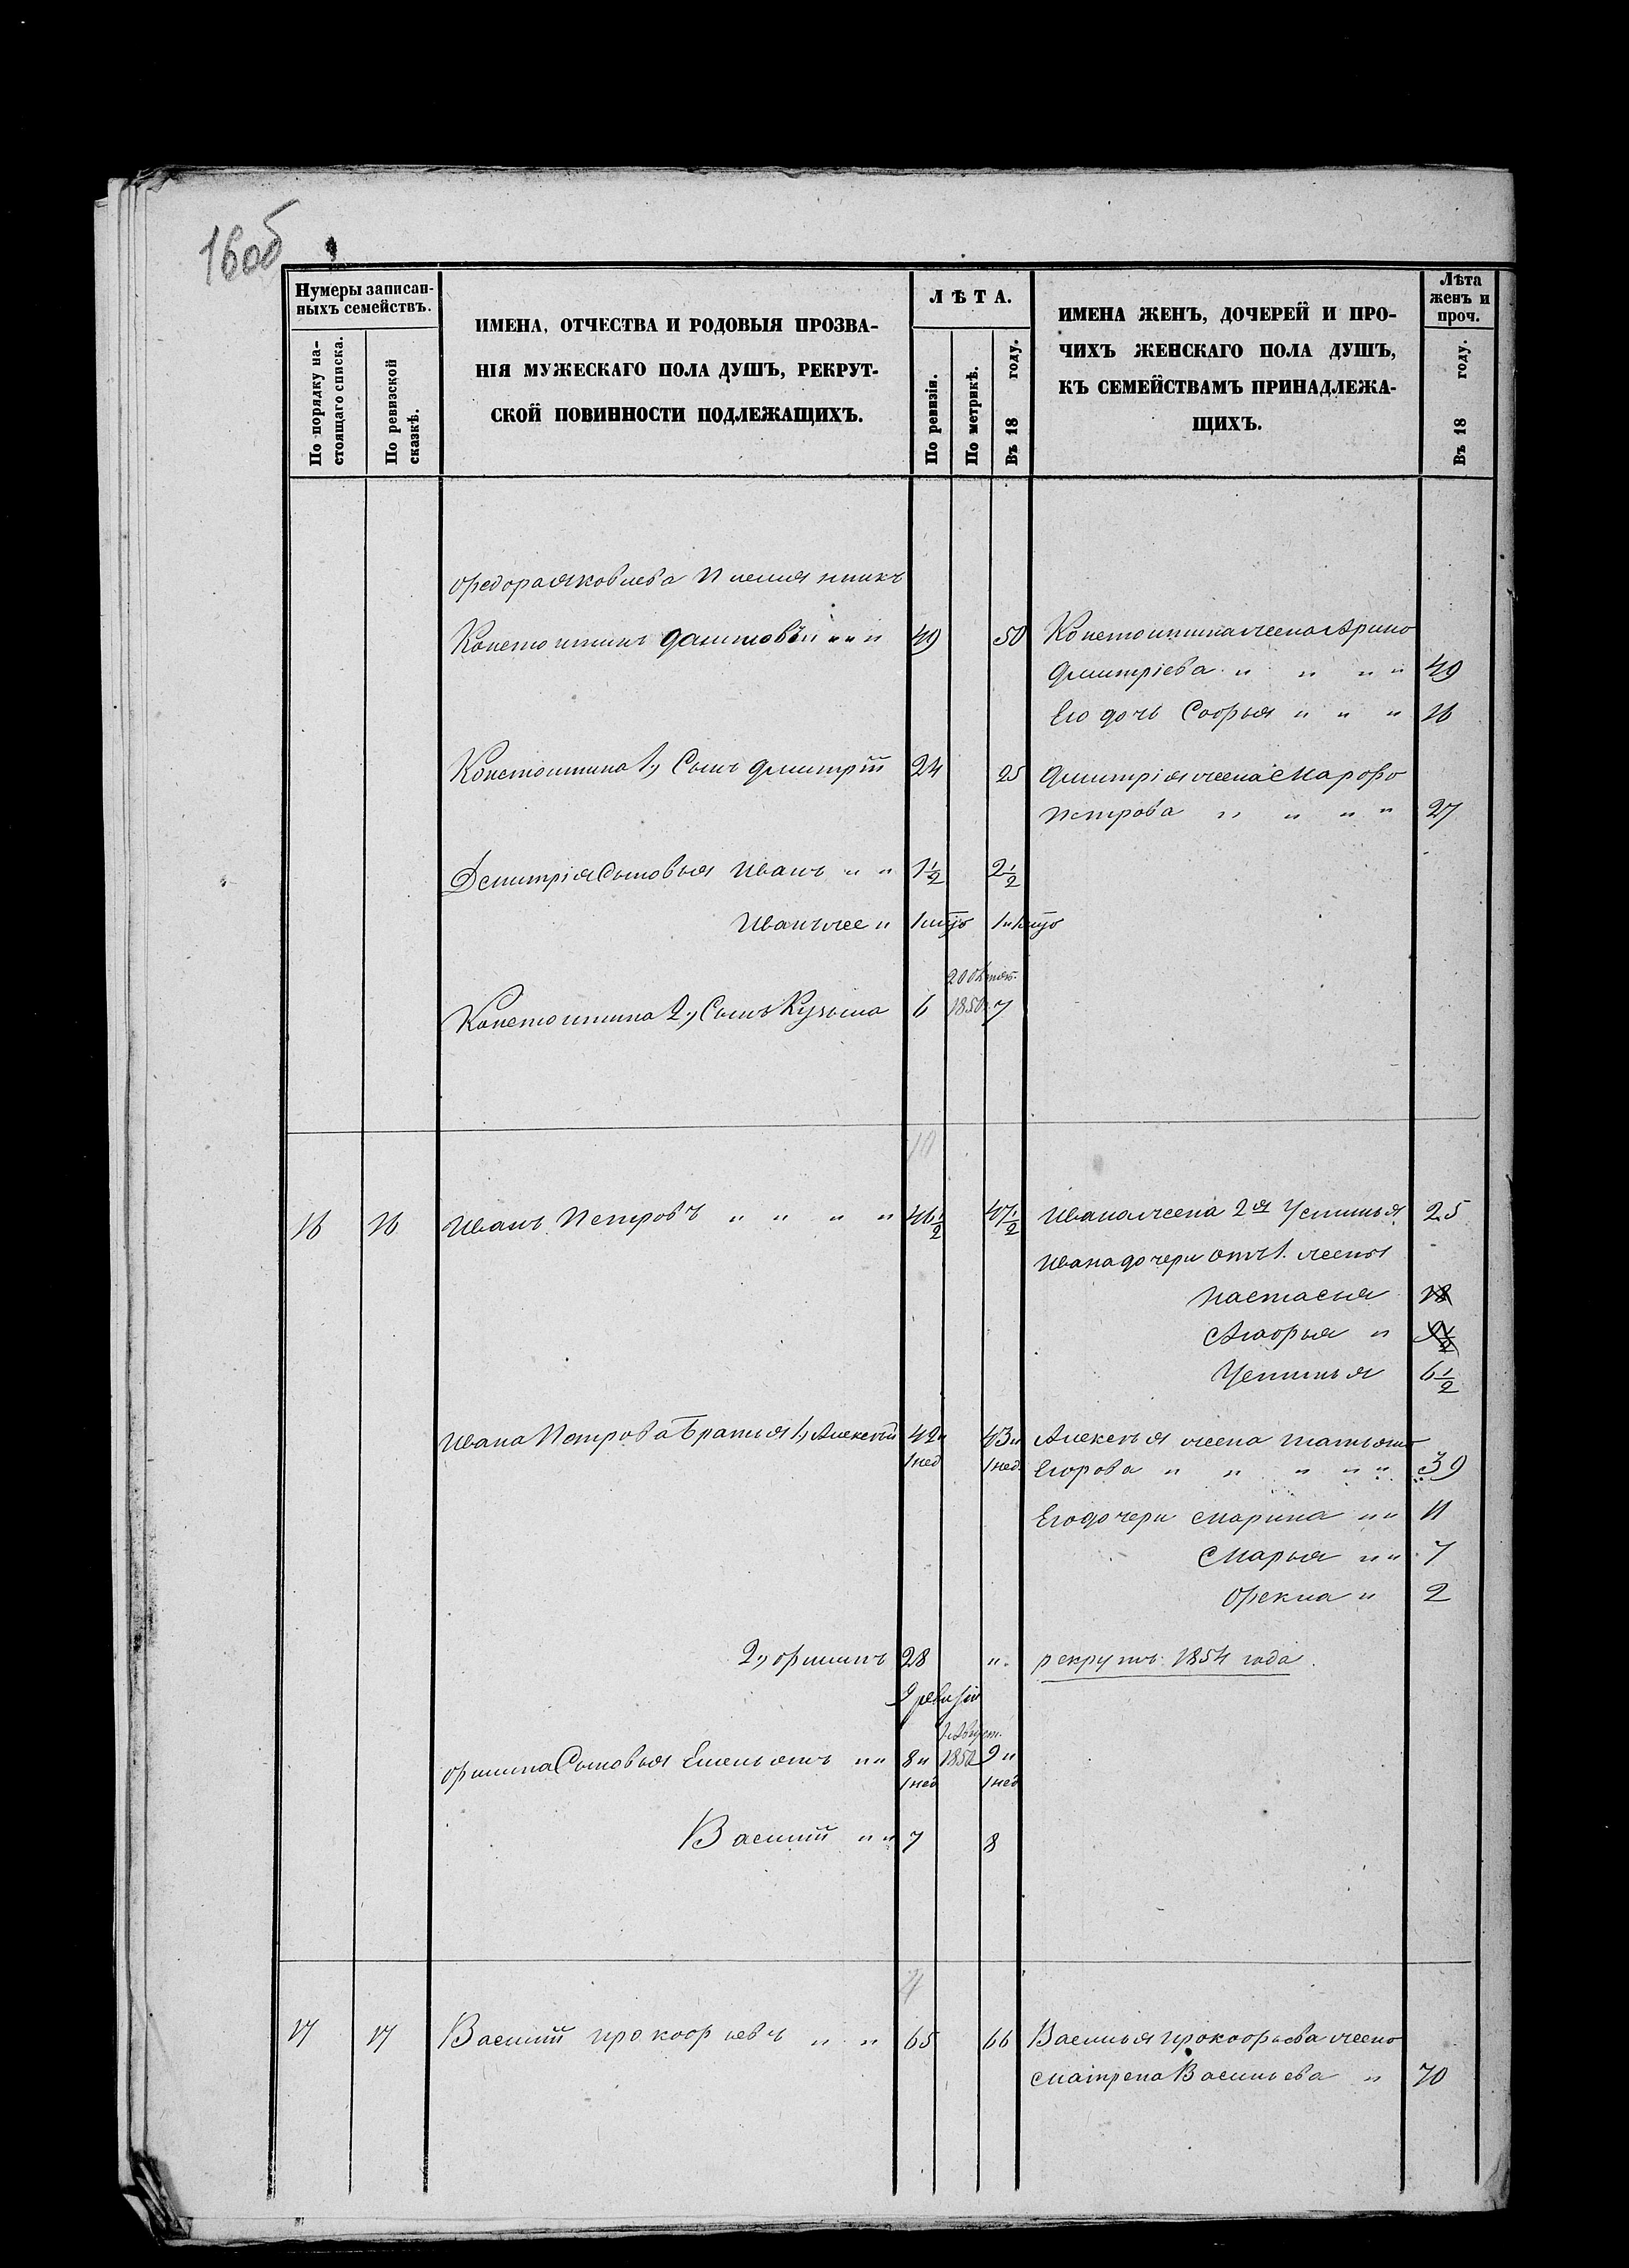 16об
Нумеры записан-
ныхъ семействъ.
По порядку на-
стоящаго списка.
По ревизской
сказкѣ.
ИМЕНА, ОТЧЕСТВА И РОДОВЫЯ ПРОЗВА-
НІЯ МУЖЕСКАГО ПОЛА ДУШЪ, РЕКРУТ-
СКОЙ ПОВИННОСТИ ПОДЛЕЖАЩИХЪ.
ЛѢТА.
По ревизіи.
По метрикѣ.
Въ 18 году.
ИМЕНА ЖЕНЪ, ДОЧЕРЕЙ И ПРО-
ЧИХЪ ЖЕНСКАГО ПОЛА ДУШЪ,
КЪ СЕМЕЙСТВАМЪ ПРИНАДЛЕЖА-
ЩИХЪ.
Лѣта
женъ и
проч.
Въ 18 году.
Федора яковлева Племянникъ
Констонтинъ " " " 49 50 Констонтина жена Арино
Дмитріева " " " " 49
Его дочь Софья " " " 16
Констонтина 1, Сынъ Дмитрій 24 25 Дмитрія жена Марфо
Петрова " " " " 27
Дмитрія Сыновья Иванъ " " 1½ 2½
Иванъ же "
1850 7
Констонтина 2, Сынъ Кузьма 6
10
16 16 Иванъ Петровъ " " " " 46½ 47½ Ивана жена 2я Устинья 25
Ивана дочери отъ 1. жены
Настасья 18
Агофья " 9½
Устинья 6½
Ивана Петрова Братья 1, Алексѣй 42 " 43 " Алексѣя жена Татьяно
1 нед 1 нед. Егорова " " " " " 39
Его дочери Марина " " 11
Марья " " 7
Фекла " 2
2, Филипъ 28 " рекрутъ 1854 года.
9 ревизіи
1 Август.
Филипа Сыновья Емельянъ " " 8 " 1850 9 "
1 нед 1 нед
Василій " " 7 8
4
17 17 Василій прокофьевъ " " 65 66 Василья прокофьева жено
Матрена Васильева " 70